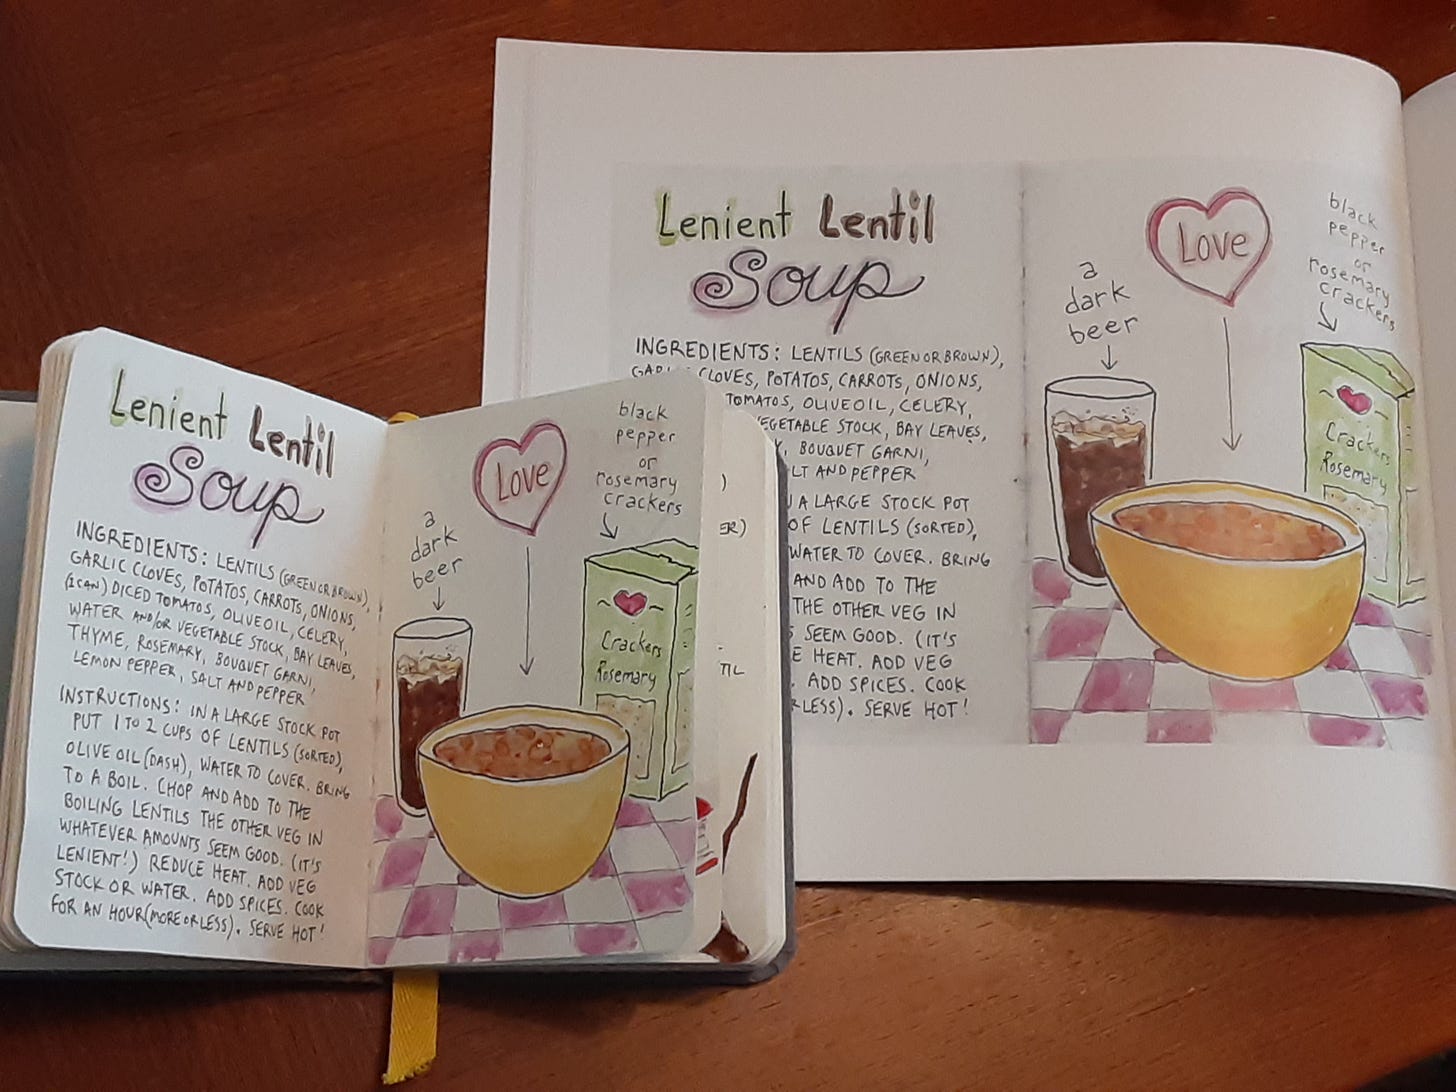 Lenient Lentil
Soup
INGREDIENTS: LENTILS (GREEN OR BROWN),
GARLIC CLOVES, POTATOS, CARROTS, ONIONS,
(1 CAN) DICED TOMATOS, OLIVE OIL, CELERY,
WATER AND/OR VEGETABLE STOCK, BAY LEAVES,
THYME, ROSEMARY, BOUQUET GARNI,
LEMON PEPPER, SALT AND PEPPER
INSTRUCTIONS: IN A LARGE STOCK POT
PUT 1 TO 2 CUPS OF LENTILS (SORTED),
OLIVE OIL (DASH), WATER TO COVER. BRING
TO A BOIL. CHOP AND ADD TO THE
BOILING LENTILS THE OTHER VEG IN
WHATEVER AMOUNTS SEEM GOOD. (IT'S
LENIENT!) REDUCE HEAT. ADD VEG
STOCK OR WATER. ADD SPICES. COOK
FOR AN HOUR (MORE OR LESS). SERVE HOT!
Love
a
dark
beer
black
pepper
or
rosemary
crackers
Crackers
Rosemary
)
ER)
TIL
Lenient Lentil
Soup
INGREDIENTS: LENTILS (GREEN OR BROWN),
CLOVES, POTATOS, CARROTS, ONIONS,
TOMATOS, OLIVE OIL, CELERY,
VEGETABLE STOCK, BAY LEAVES,
Y, BOUQUET GARNI,
LT AND PEPPER
IN A LARGE STOCK POT
OF LENTILS (SORTED),
WATER TO COVER. BRING
AND ADD TO THE
THE OTHER VEG IN
S SEEM GOOD. (IT'S
E HEAT. ADD VEG
. ADD SPICES. COOK
RLESS). SERVE HOT!
Love
a
dark
beer
black
pepper
or
rosemary
crackers
Crackers
Rosemary